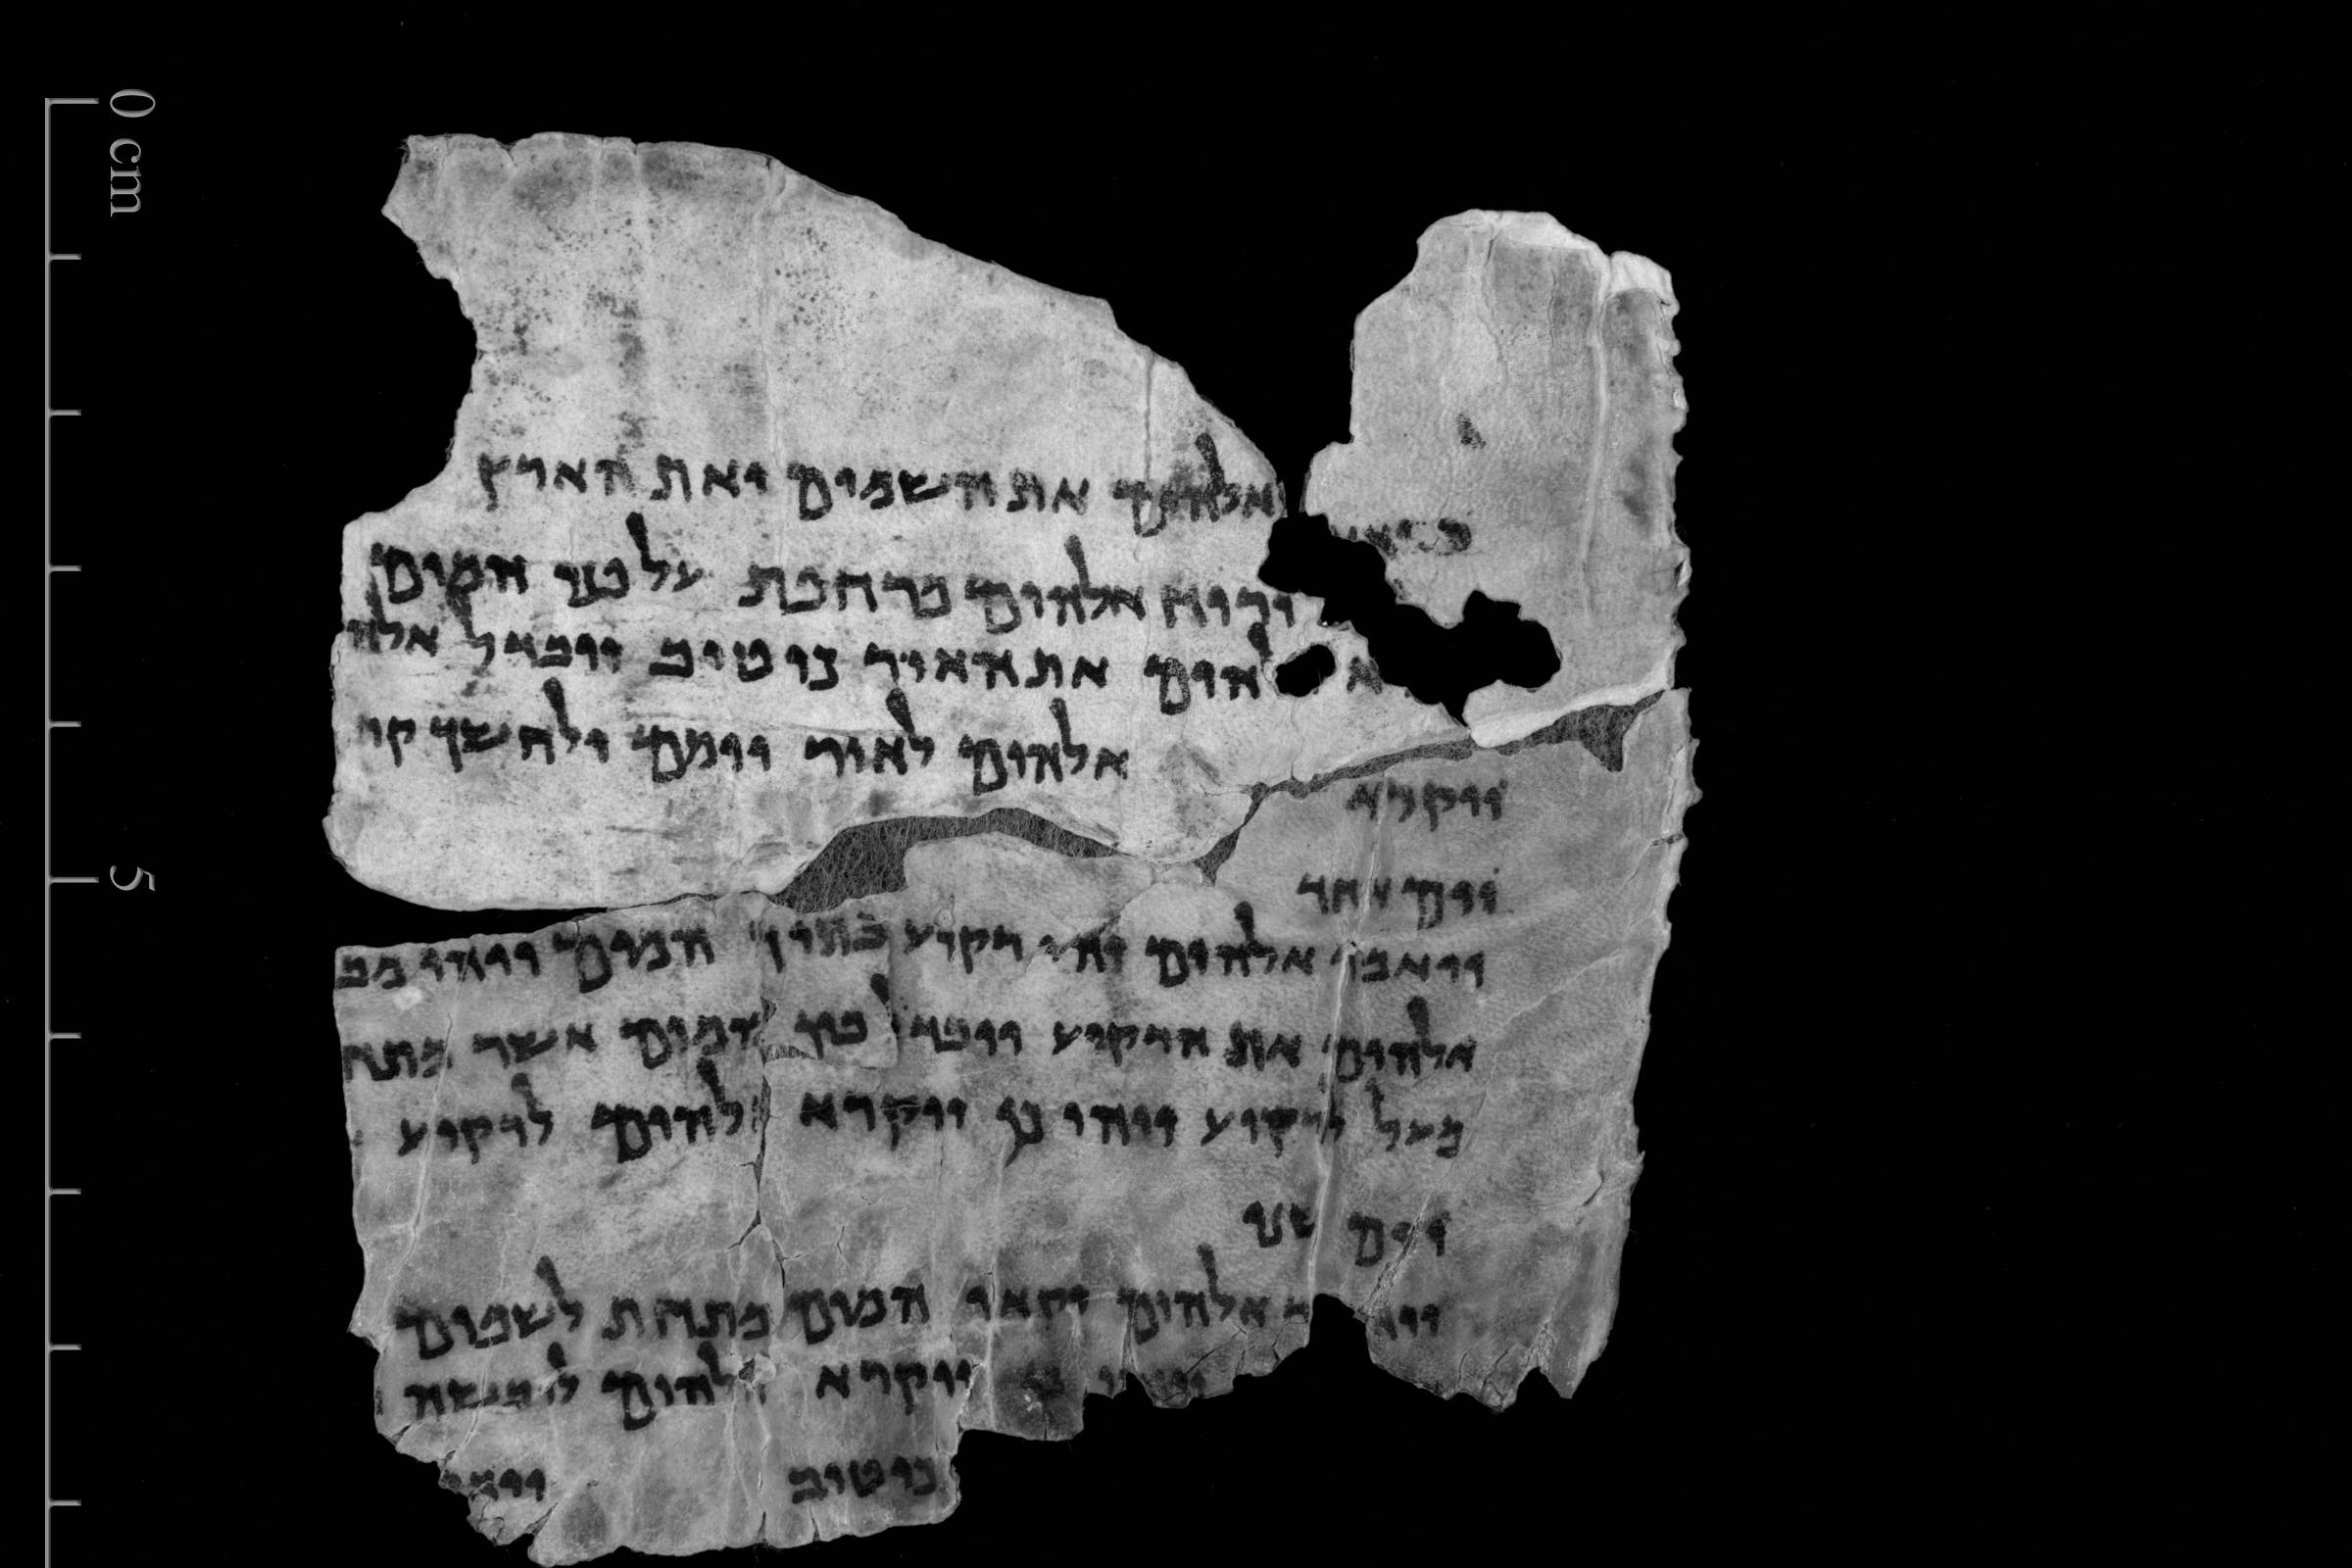 אלהים את השמים ואת הארץ
ורוח אלהים מרחפת על פני המים
אלהים את האור כי טוב ויבדל אלה
ויקרא אלהים לאור יומם ולחשך קר
יום אחד
ויאמר אלהים יהי רקיע בתוך המים ויהי מב
אלהים את הרקיע ויבדל בין המים אשר מתח
מעל לרקיע ויהי כן ויקרא אלהים לרקיע
יום שני
ויאמר אלהים יקאו המים מתחת לשמים
ויקרא אלהים ליבשה
כי טוב